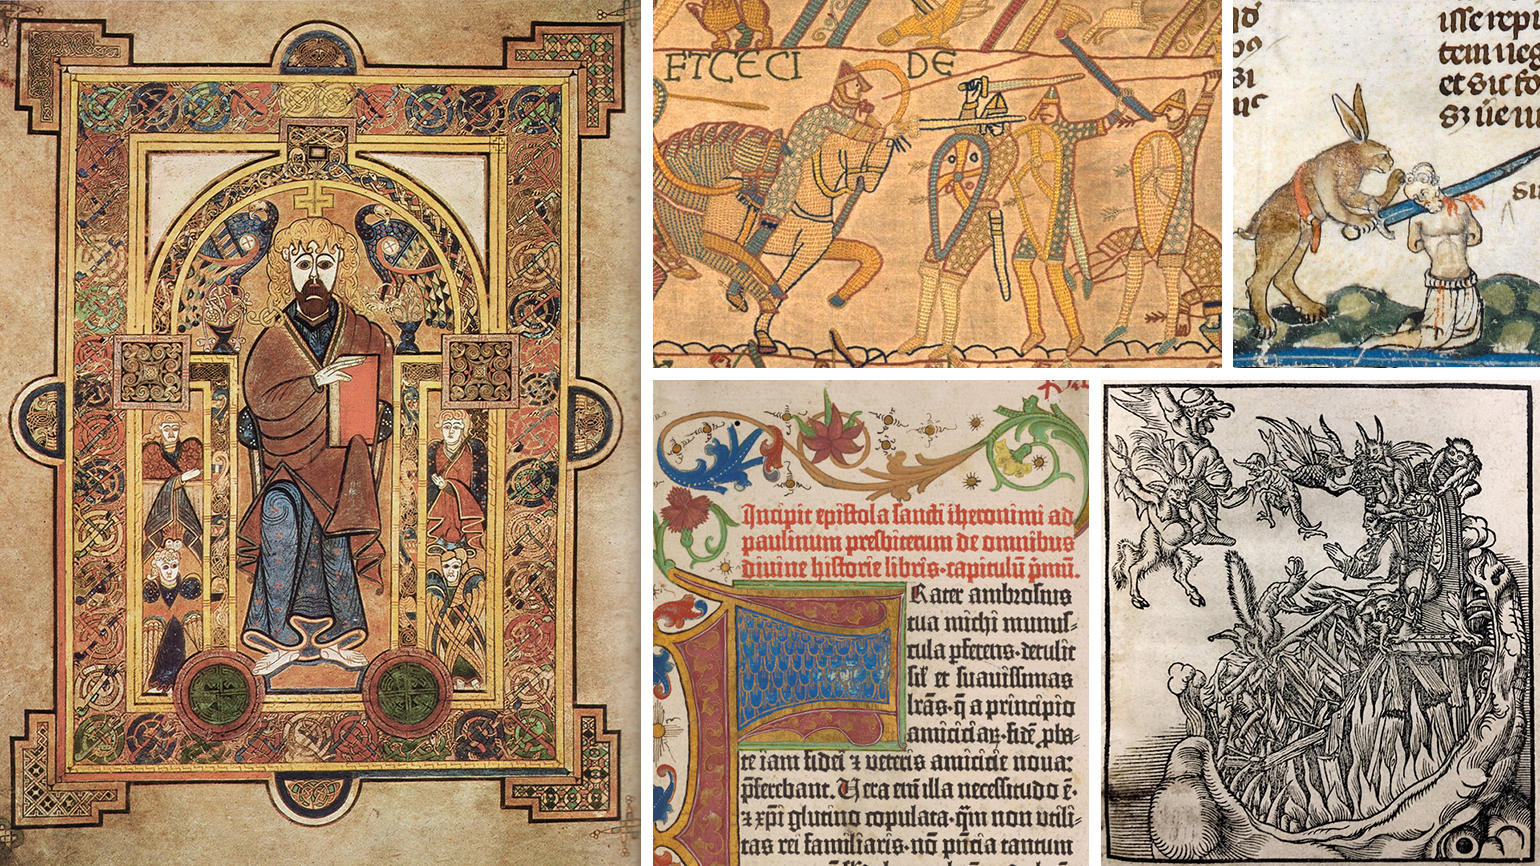 ET CECI DE
isse repu
Incipit epistola sancti iheronimi ad
paulinum presbiterum de omnibus
divine historie libris·capitulū p̄mū.
Frater ambrosius
tua michi munus-
cula pferens·detulit
sil' et suavissimas
lrās·q̄ a principio
amiciciar̄·fidē pba-
te iam fidei ⁊ veteris amicicie nova:
pferebant. Vera eni illa necessitudo ē·
⁊ xp̄i glutino copulata·qm̄ non utili-
tas rei familiaris·nō pn̄tia tantum